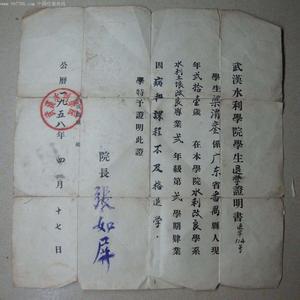 武漢水利學院學生退學證明書
退字114号
學生梁渭銮係广东省番禺縣人現
年弍拾壹歲 在本學院水利改良學系
水利土壤改良專業弍年級第弍學期肄業
因病和課程不及格退学.
學特予證明此證
院長張如屏
公曆一九五八年四月十七日